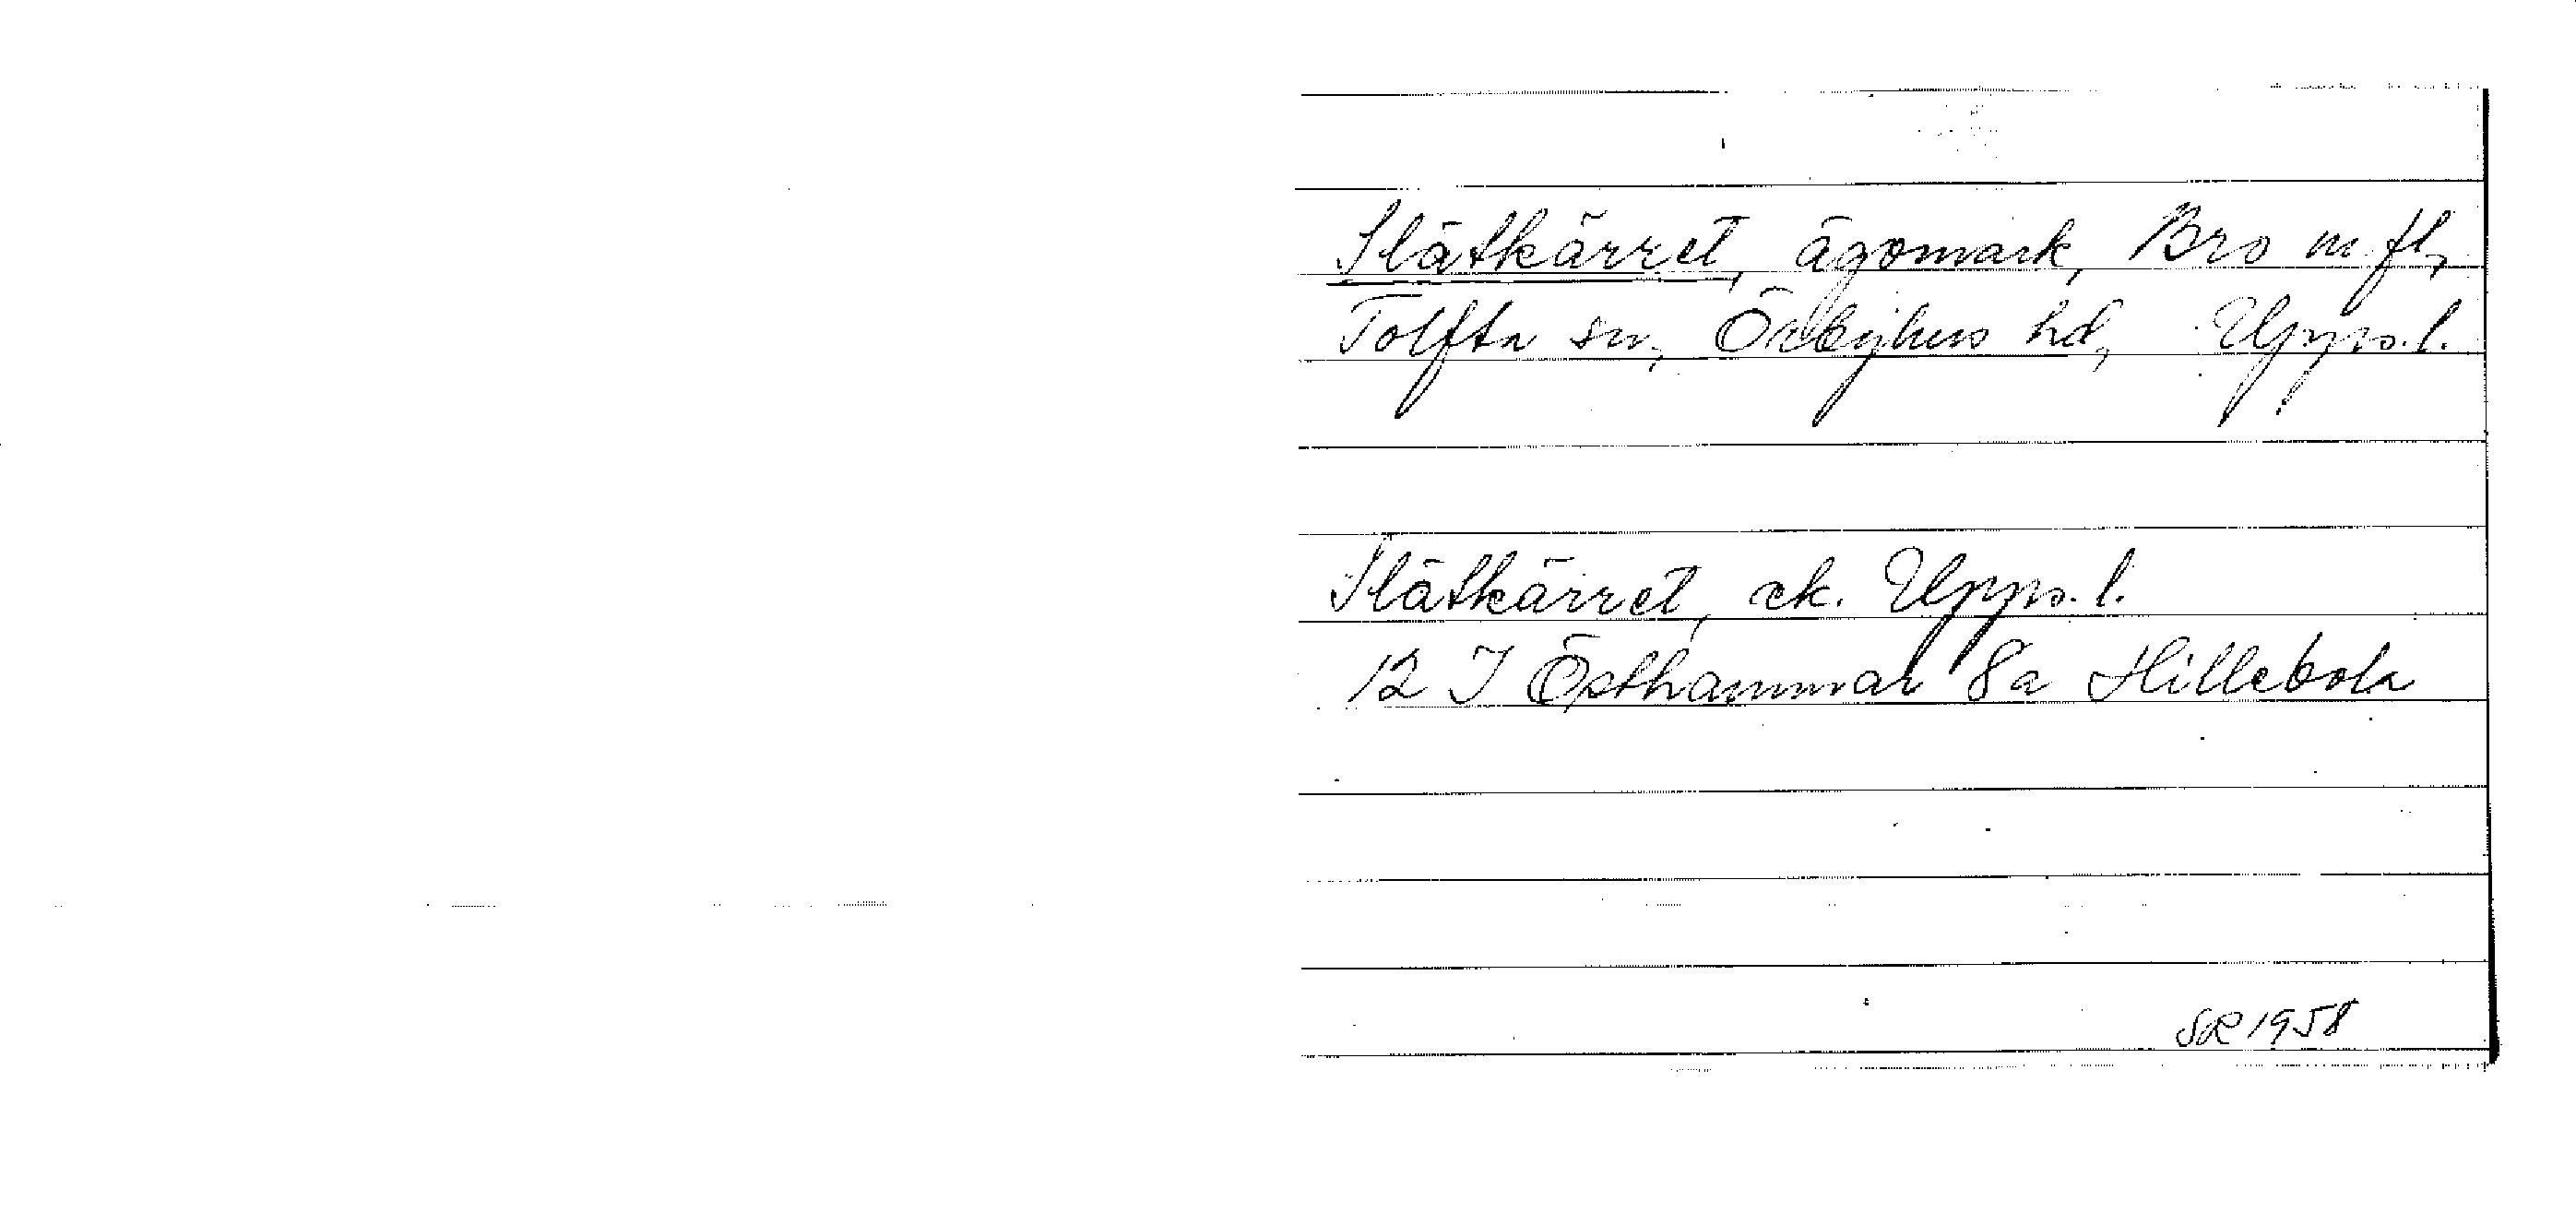 Slåtkärret, ägomark, Bro m.fl.,
Tolfta sn, Örbyhus hd, Upps. l.
Slåtkärret, ek. Upps. l.
12 I Östhammar 8a Hillebola
SR 1958